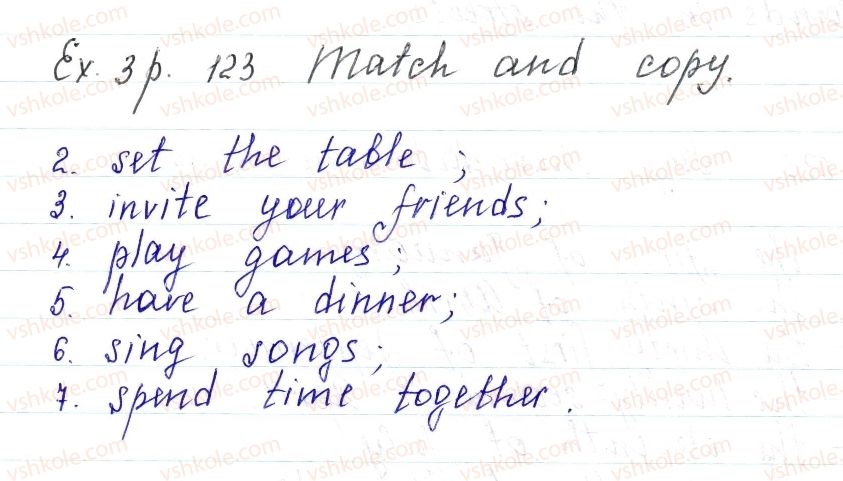 Ex. 3 p. 123 Match and copy.
2. set the table ;
3. invite your friends;
4. play games ;
5. have a dinner;
6. sing songs;
7. spend time together.